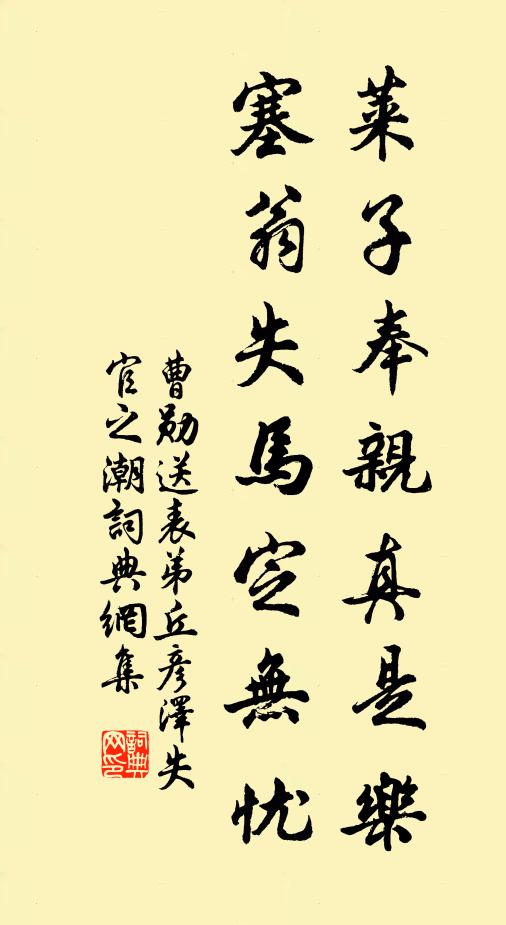 萊子奉親真是樂
塞翁失馬定無忧
曹勛送表弟丘彥澤失
官之潮詞典網集
詞典网印